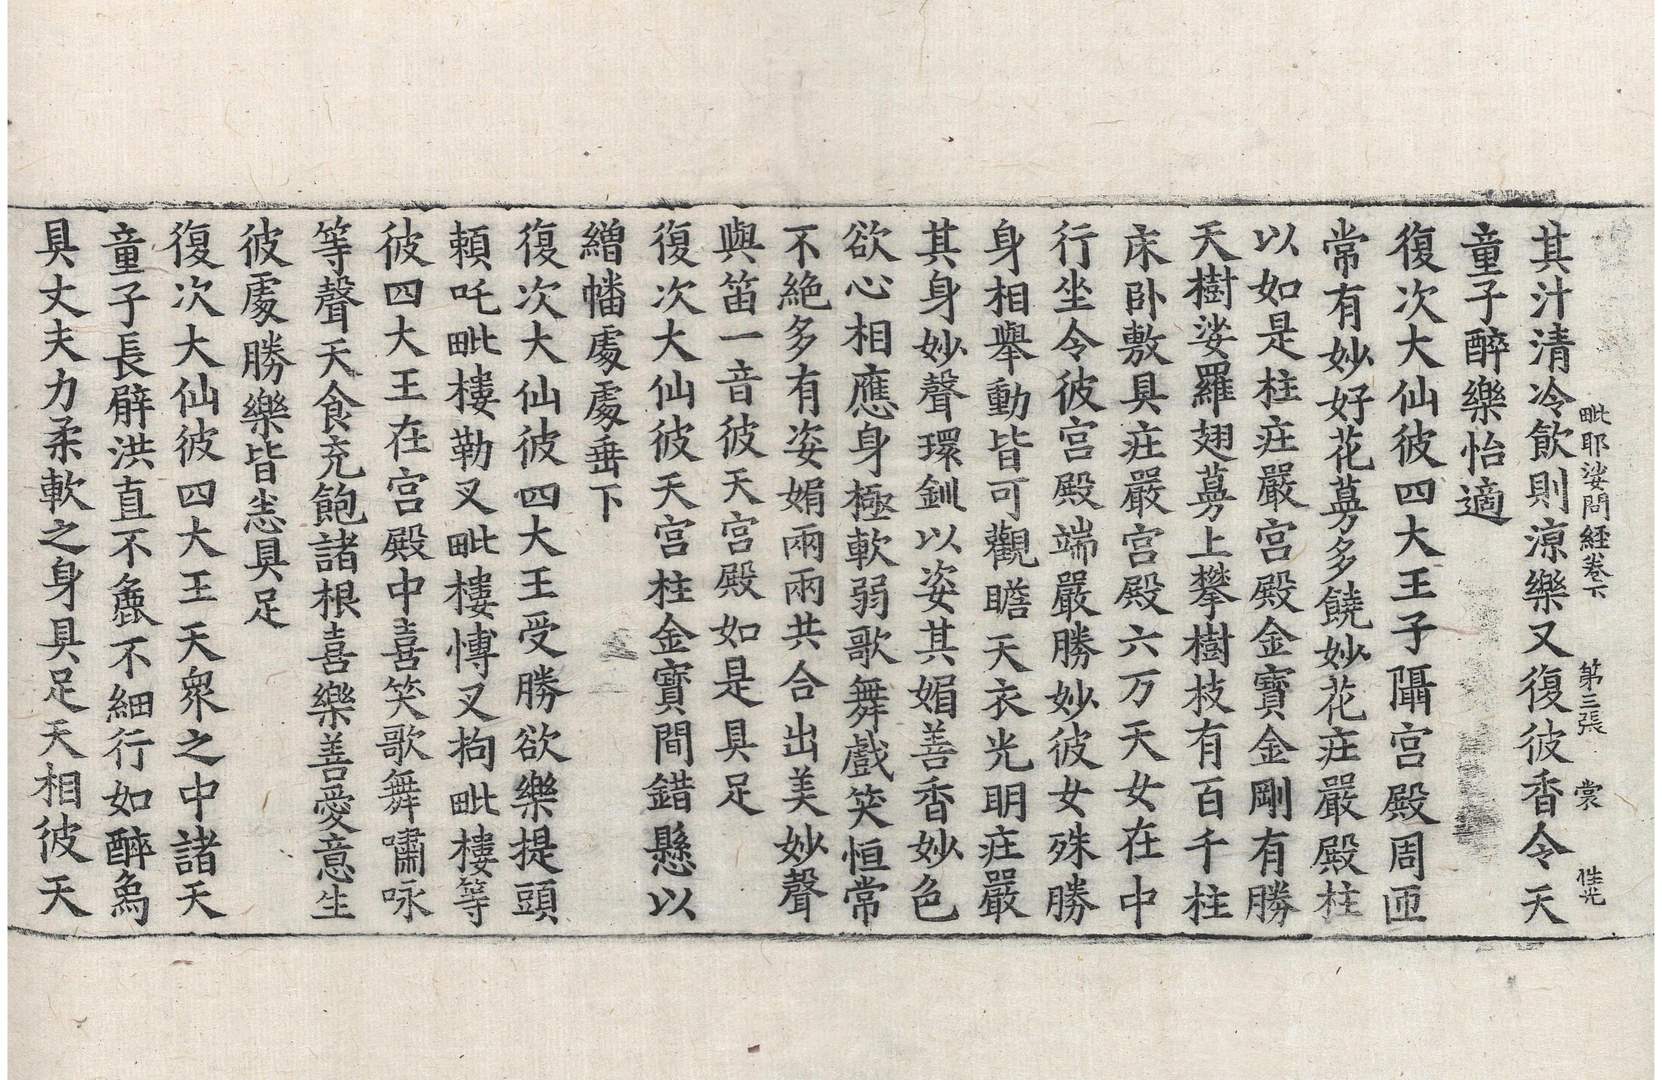 毗耶娑問經卷下　第三張　裳　性光
其汁清冷飲則涼樂又復彼香令天
童子醉樂怡適
復次大仙彼四大王子隅宮殿周匝
常有妙好花蕚多饒妙花庄嚴殿柱
以如是柱庄嚴宮殿金寶金剛有勝
天樹娑羅翅蕚上攀樹枝有百千柱
床卧敷具庄嚴宮殿六万天女在中
行坐令彼宮殿端嚴勝妙彼女殊勝
身相舉動皆可觀瞻天衣光明庄嚴
其身妙聲環釧以姿其媚善香妙色
欲心相應身極軟弱歌舞戲笑恒常
不絕多有姿媚兩兩共合出美妙聲
與笛一音彼天宮殿如是具足
復次大仙彼天宮柱金寶間錯懸以
繒幡處處垂下
復次大仙彼四大王受勝欲樂提頭
頼吒毗樓勒叉毗樓博叉拘毗樓等
彼四大王在宮殿中喜笑歌舞嘯咏
等聲天食充飽諸根喜樂善愛意生
彼處勝樂皆悉具足
復次大仙彼四大王天衆之中諸天
童子長臂洪直不麁不細行如醉象
具丈夫力柔軟之身具足天相彼天